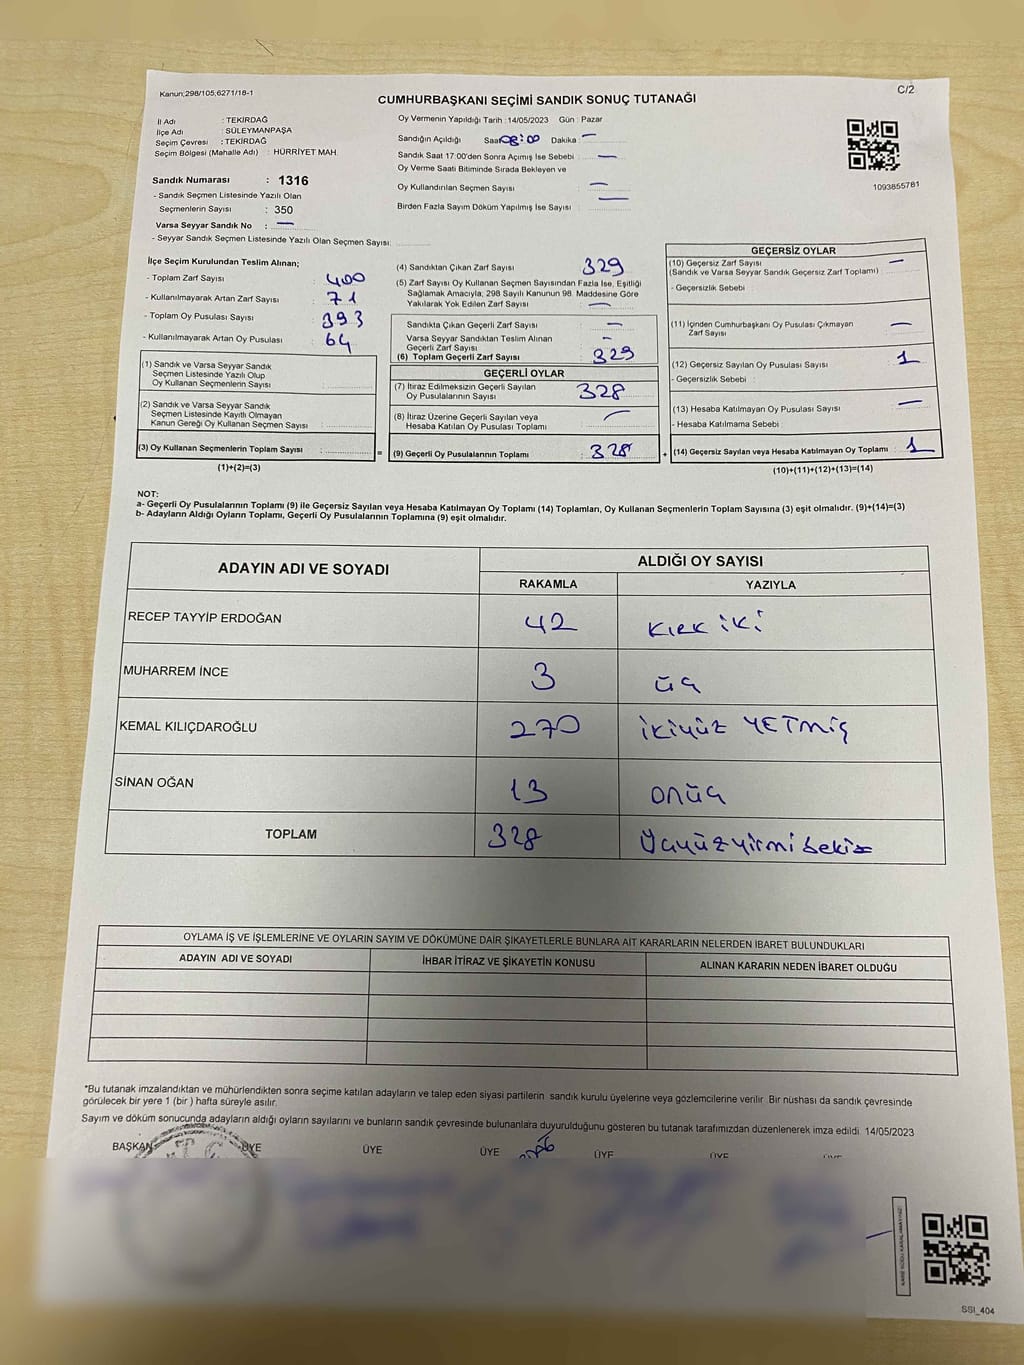 Kanun;298/105,6271/18-1
C/2
CUMHURBAŞKANI SEÇİMİ SANDIK SONUÇ TUTANAĞI
İl Adı : TEKİRDAĞ
İlçe Adı : SÜLEYMANPAŞA
Seçim Çevresi : TEKİRDAĞ
Seçim Bölgesi (Mahalle Adı) : HÜRRİYET MAH.
Sandık Numarası : 1316
- Sandık Seçmen Listesinde Yazılı Olan
Seçmenlerin Sayısı : 350
Varsa Seyyar Sandık No : —
- Seyyar Sandık Seçmen Listesinde Yazılı Olan Seçmen Sayısı :
Oy Vermenin Yapıldığı Tarih : 14/05/2023 Gün : Pazar
Sandığın Açıldığı Saat 08:00 Dakika : —
Sandık Saat 17:00'den Sonra Açımış İse Sebebi : —
Oy Verme Saati Bitiminde Sırada Bekleyen ve
Oy Kullandırılan Seçmen Sayısı : —
Birden Fazla Sayım Döküm Yapılmış İse Sayısı : —
1093855781
İlçe Seçim Kurulundan Teslim Alınan;
- Toplam Zarf Sayısı : 400
- Kullanılmayarak Artan Zarf Sayısı : 71
- Toplam Oy Pusulası Sayısı : 393
- Kullanılmayarak Artan Oy Pusulası : 64
(1) Sandık ve Varsa Seyyar Sandık
Seçmen Listesinde Yazılı Olup
Oy Kullanan Seçmenlerin Sayısı :
(2) Sandık ve Varsa Seyyar Sandık
Seçmen Listesinde Kayıtlı Olmayan
Kanun Gereği Oy Kullanan Seçmen Sayısı :
(3) Oy Kullanan Seçmenlerin Toplam Sayısı :
(1)+(2)=(3)
(4) Sandıktan Çıkan Zarf Sayısı : 329
(5) Zarf Sayısı Oy Kullanan Seçmen Sayısından Fazla İse, Eşitliği
Sağlamak Amacıyla; 298 Sayılı Kanunun 98. Maddesine Göre
Yakılarak Yok Edilen Zarf Sayısı : —
Sandıkta Çıkan Geçerli Zarf Sayısı : —
Varsa Seyyar Sandıktan Teslim Alınan
Geçerli Zarf Sayısı : —
(6) Toplam Geçerli Zarf Sayısı : 329
GEÇERLİ OYLAR
(7) İtiraz Edilmeksizin Geçerli Sayılan
Oy Pusulalarının Sayısı : 328
(8) İtiraz Üzerine Geçerli Sayılan veya
Hesaba Katılan Oy Pusulası Toplamı : —
= (9) Geçerli Oy Pusulalarının Toplamı : 328 +
GEÇERSİZ OYLAR
(10) Geçersiz Zarf Sayısı : —
(Sandık ve Varsa Seyyar Sandık Geçersiz Zarf Toplamı)
- Geçersizlik Sebebi :
(11) İçinden Cumhurbaşkanı Oy Pusulası Çıkmayan
Zarf Sayısı : —
(12) Geçersiz Sayılan Oy Pusulası Sayısı : 1
- Geçersizlik Sebebi :
(13) Hesaba Katılmayan Oy Pusulası Sayısı : —
- Hesaba Katılmama Sebebi :
(14) Geçersiz Sayılan veya Hesaba Katılmayan Oy Toplamı : 1
(10)+(11)+(12)+(13)=(14)
NOT:
a- Geçerli Oy Pusulalarının Toplamı (9) ile Geçersiz Sayılan veya Hesaba Katılmayan Oy Toplamı (14) Toplamları, Oy Kullanan Seçmenlerin Toplam Sayısına (3) eşit olmalıdır. (9)+(14)=(3)
b- Adayların Aldığı Oyların Toplamı, Geçerli Oy Pusulalarının Toplamına (9) eşit olmalıdır.
ADAYIN ADI VE SOYADI
ALDIĞI OY SAYISI
RAKAMLA YAZIYLA
RECEP TAYYİP ERDOĞAN 42 kırk iki
MUHARREM İNCE 3 üç
KEMAL KILIÇDAROĞLU 270 ikiyüz YETmiş
SİNAN OĞAN 13 onüç
TOPLAM 328 Üçyüzyirmi sekiz
OYLAMA İŞ VE İŞLEMLERİNE VE OYLARIN SAYIM VE DÖKÜMÜNE DAİR ŞİKAYETLERLE BUNLARA AİT KARARLARIN NELERDEN İBARET BULUNDUKLARI
ADAYIN ADI VE SOYADI İHBAR İTİRAZ VE ŞİKAYETİN KONUSU ALINAN KARARIN NEDEN İBARET OLDUĞU
*Bu tutanak imzalandıktan ve mühürlendikten sonra seçime katılan adayların ve talep eden siyasi partilerin sandık kurulu üyelerine veya gözlemcilerine verilir. Bir nüshası da sandık çevresinde
görülecek bir yere 1 (bir ) hafta süreyle asılır.
Sayım ve döküm sonucunda adayların aldığı oyların sayılarını ve bunların sandık çevresinde bulunanlara duyurulduğunu gösteren bu tutanak tarafımızdan düzenlenerek imza edildi. 14/05/2023
BAŞKAN ÜYE ÜYE ÜYE ÜYE ÜYE
SSI_404